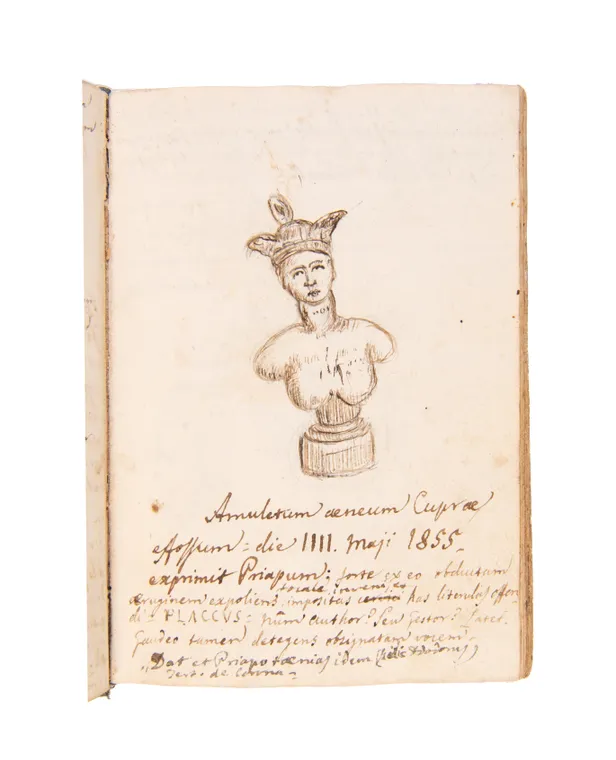 Amuletum æneum Cupræ
effossum = die IIII. Maji 1855_
exprimit Priapum; forte ex eo obductam
æruginem expoliens, impositas has literulas offen
di = PLACCUS = num author? Seu gestor?
Gaudeo tamen detegens obsignatam vocem
„Dat et Priapo tænias idem